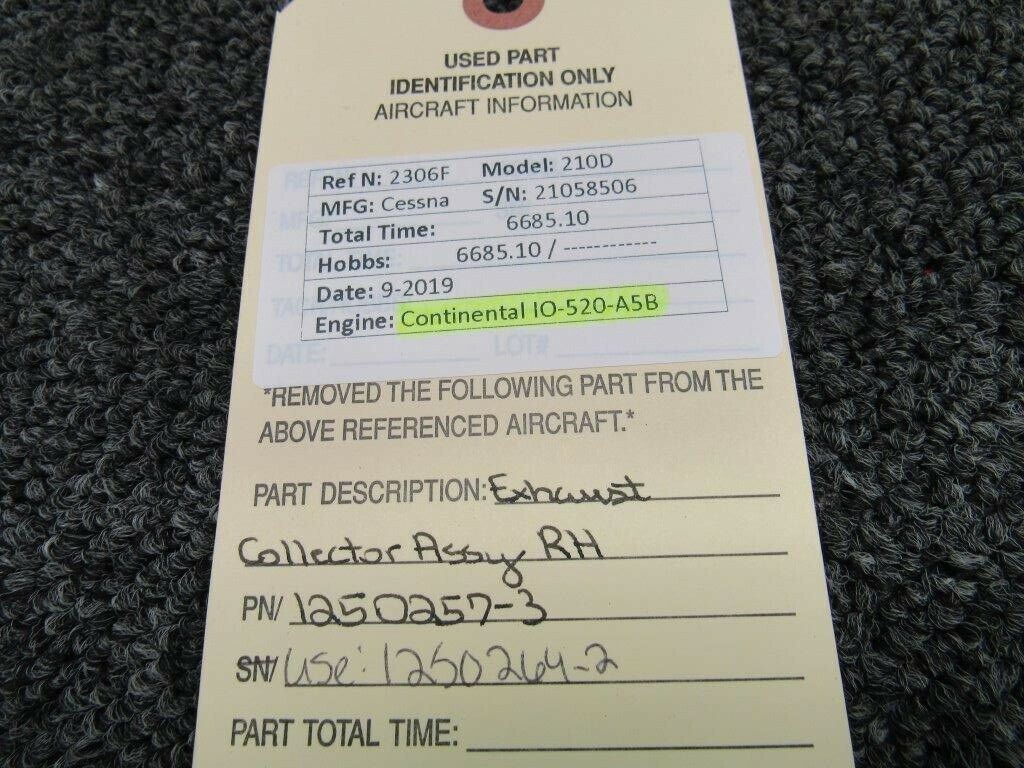 USED PART
IDENTIFICATION ONLY
AIRCRAFT INFORMATION
Ref N: 2306F Model: 210D
MFG: Cessna S/N: 21058506
Total Time: 6685.10
Hobbs: 6685.10 / ------------
Date: 9-2019
Engine: Continental IO-520-A5B
DATE: LOT#
*REMOVED THE FOLLOWING PART FROM THE
ABOVE REFERENCED AIRCRAFT.*
PART DESCRIPTION: Exhaust
Collector Assy RH
PN/ 1250257-3
SN/ USE: 1250264-2
PART TOTAL TIME: